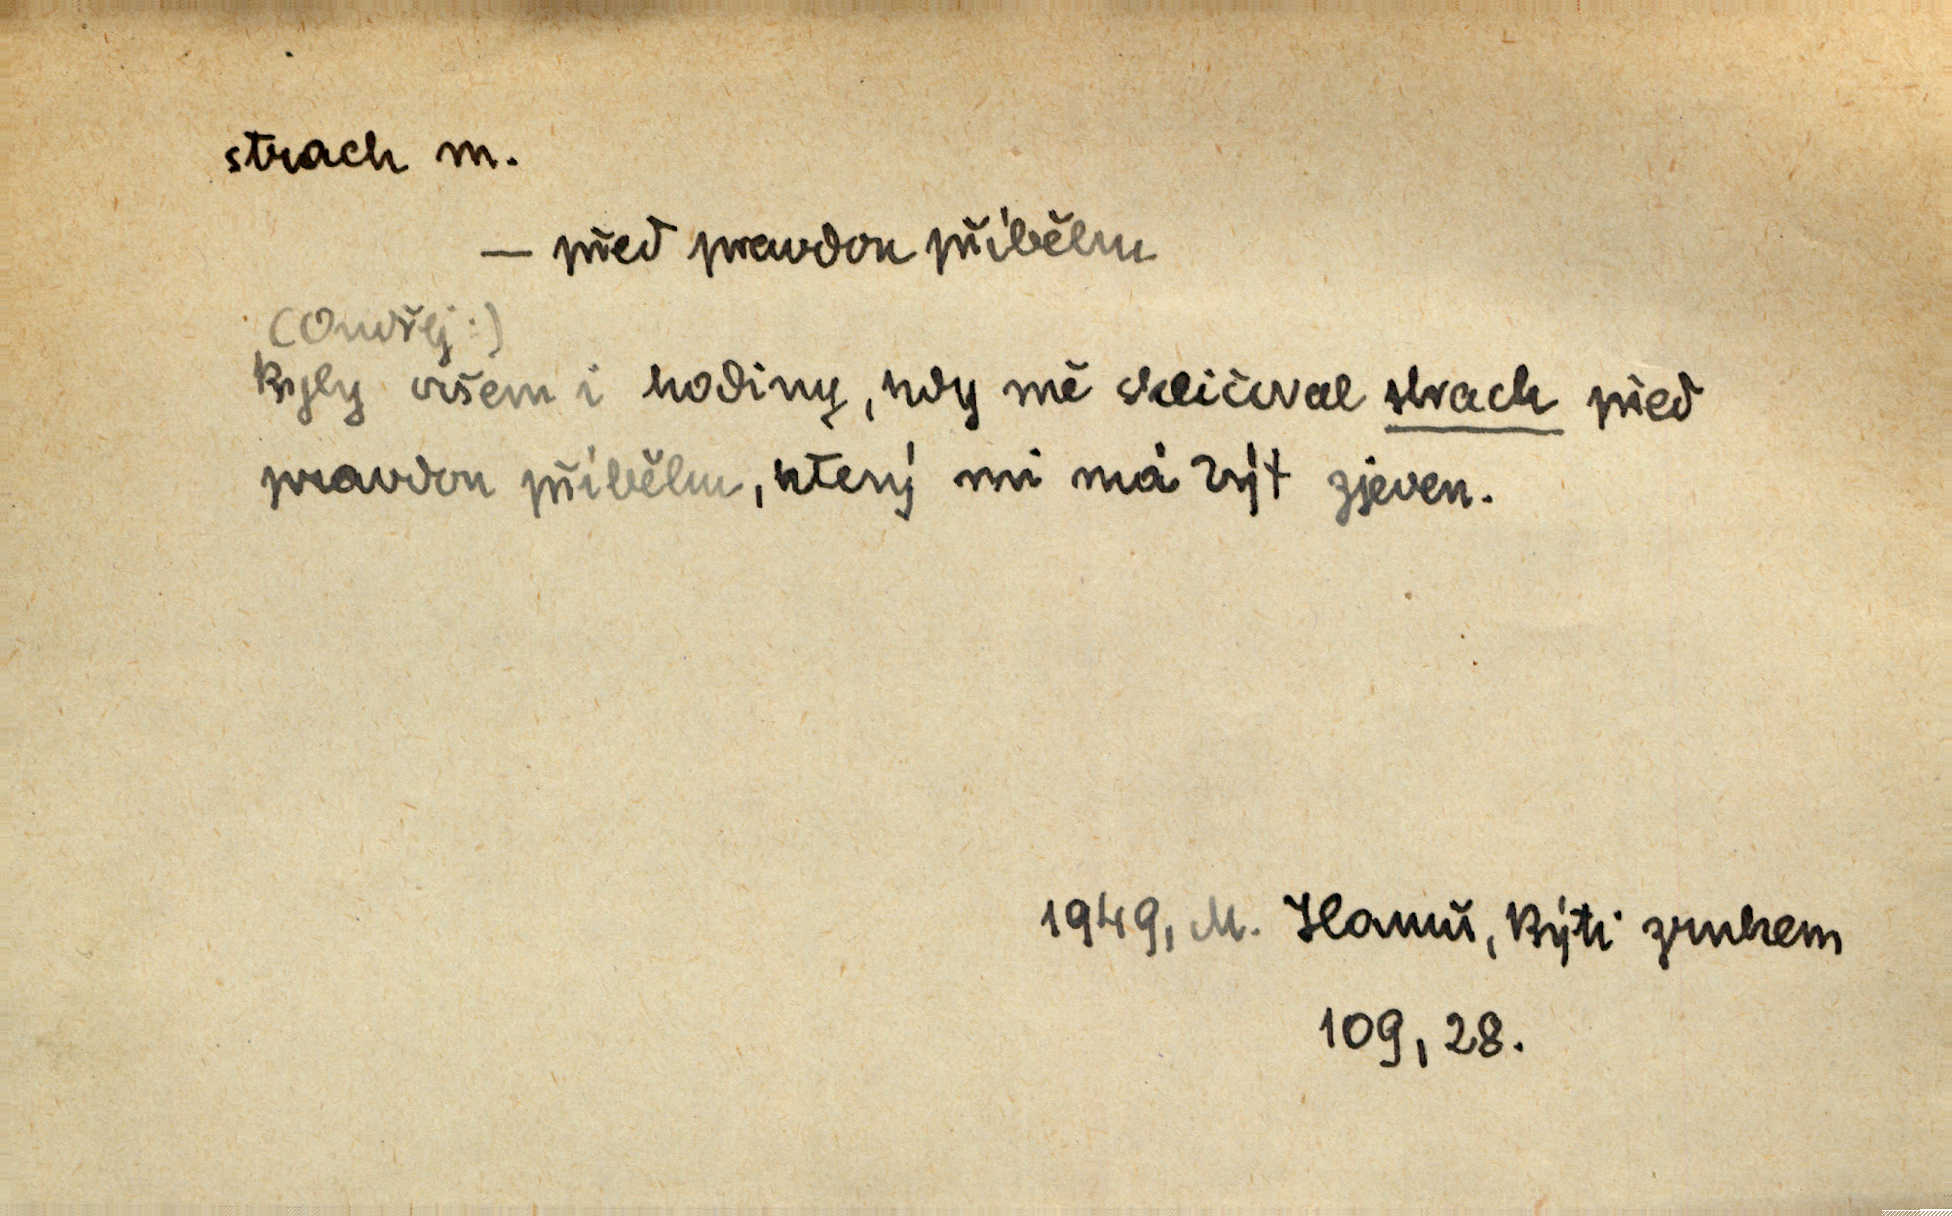 strach m.
— před pravdou příběhu
(Ondřej:)
Byly ovšem i hodiny, kdy mě skličoval strach před
pravdou příběhu, který mi má být zjeven.
1949, M. Hanuš, Býti zrnkem
109, 28.